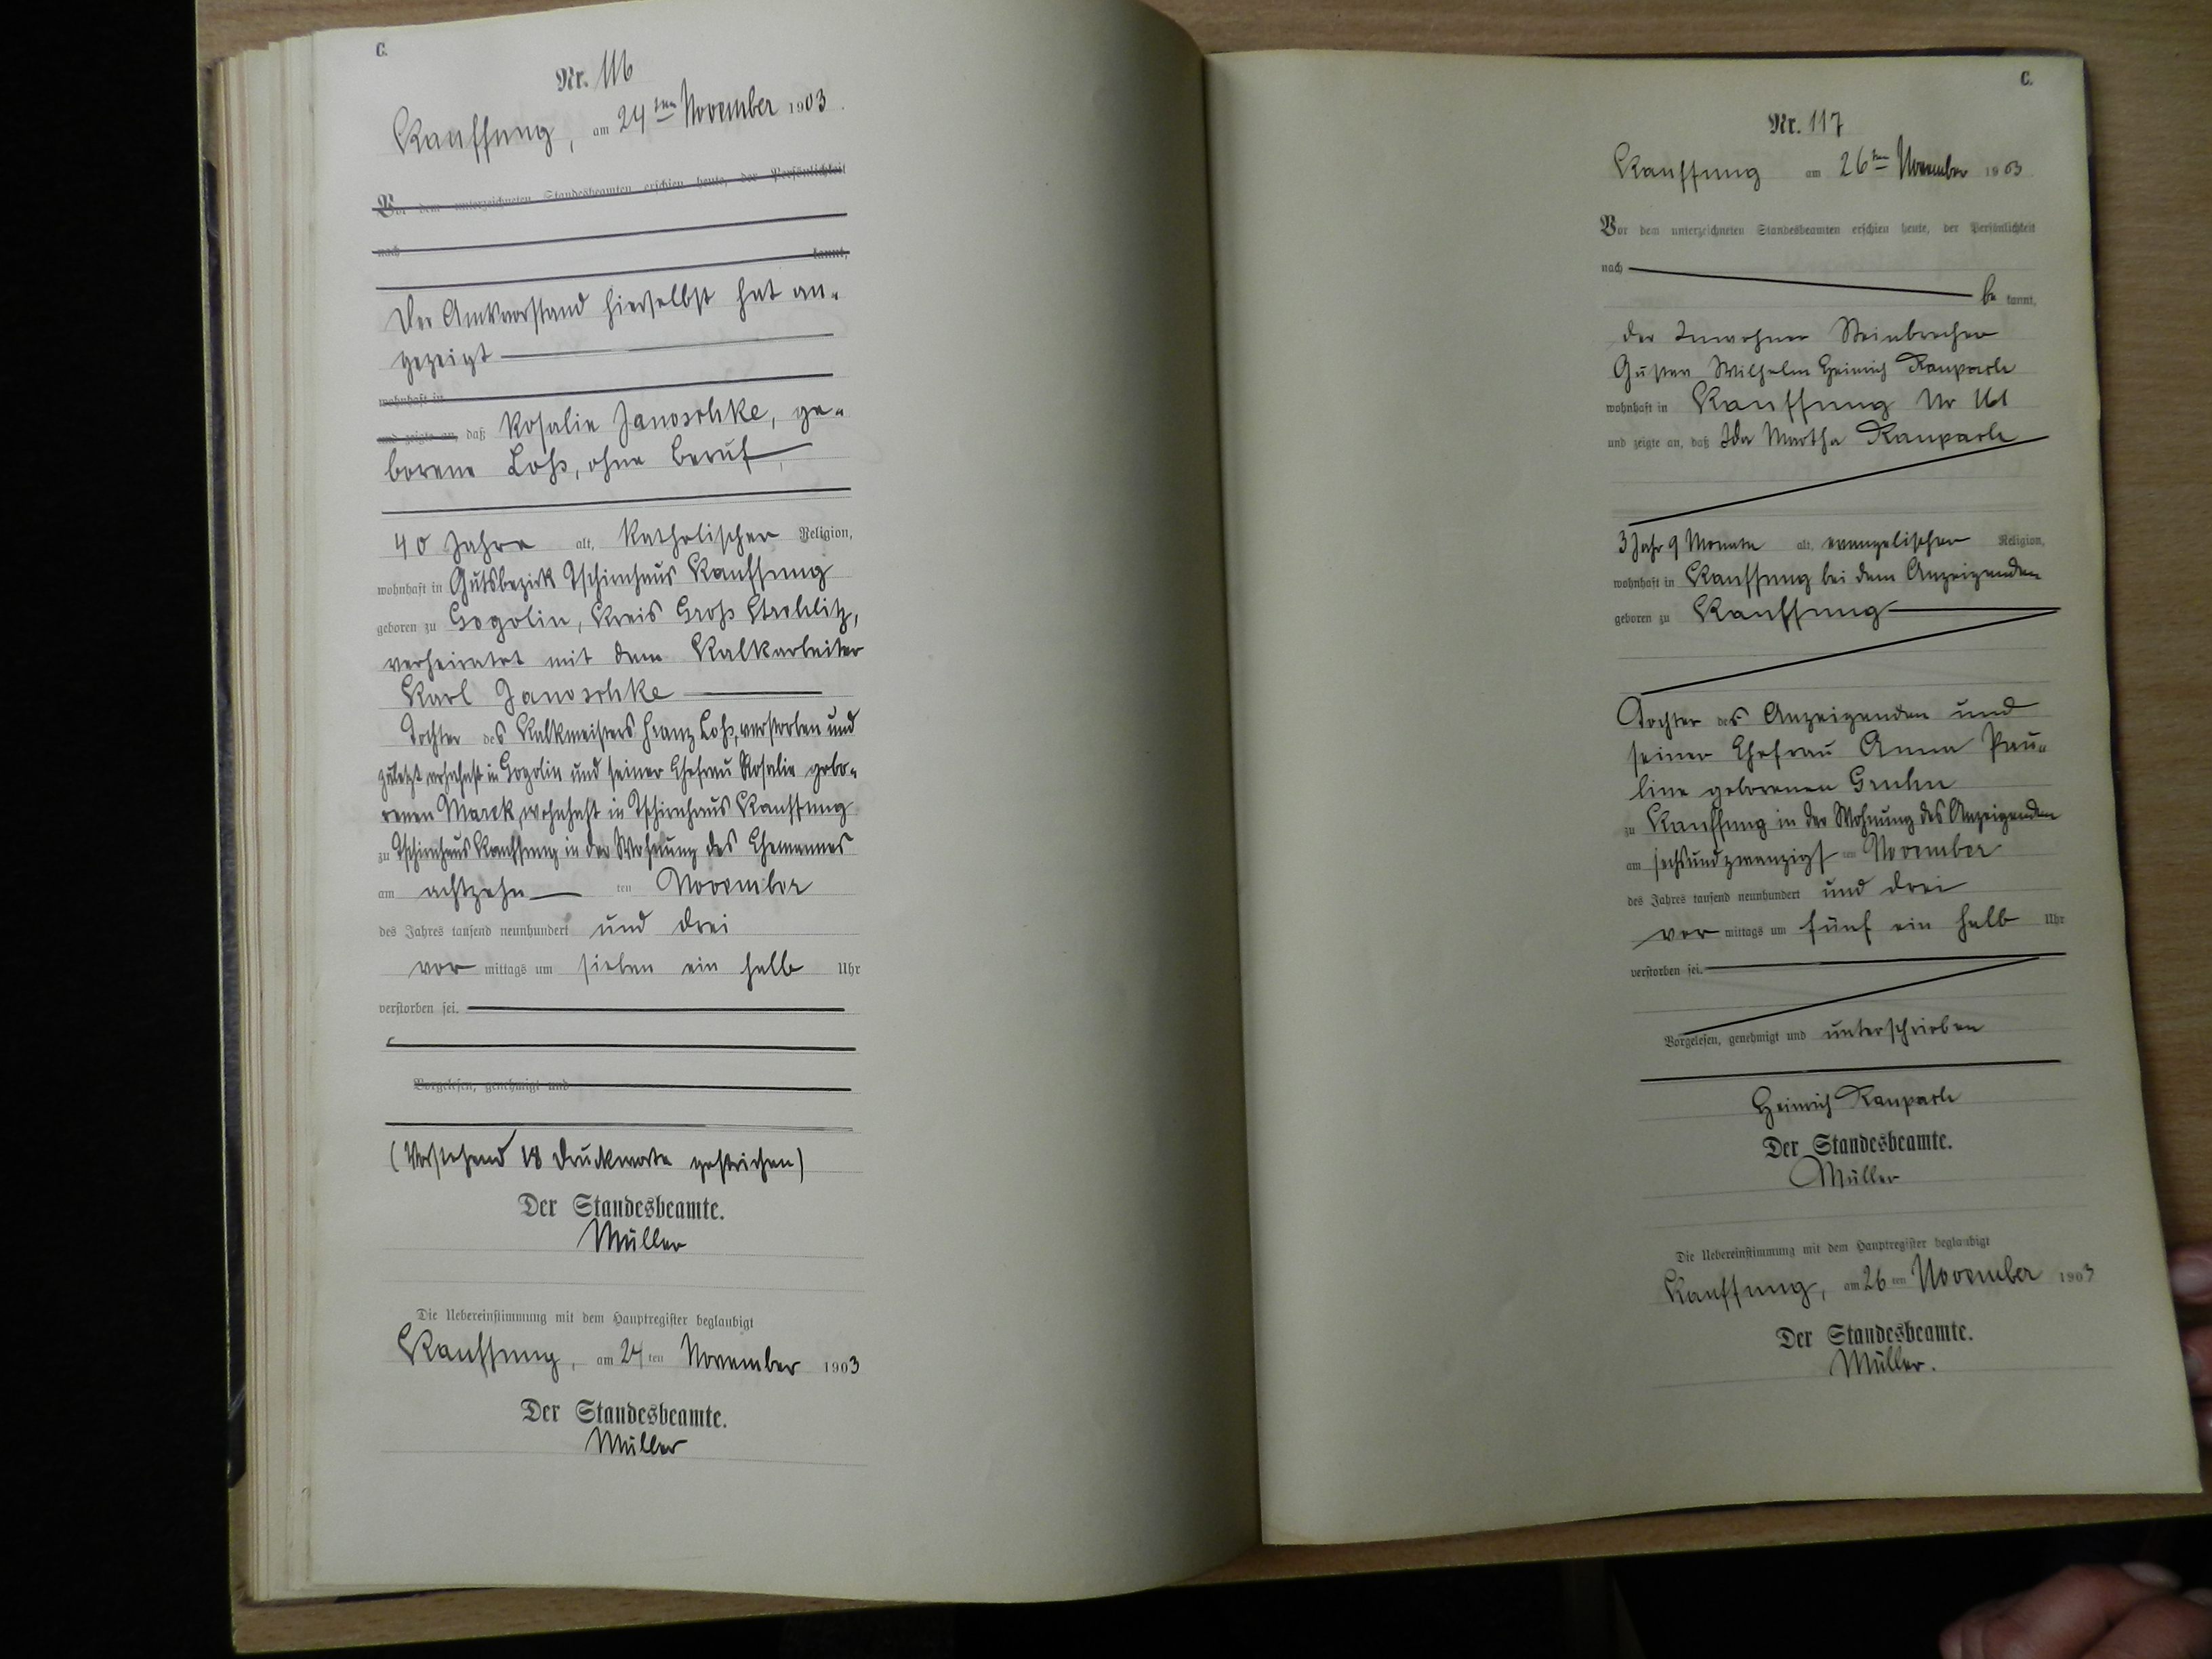 C.
Nr. 116
Kauffung, am 24ten November 1903.
Vor dem unterzeichneten Standesbeamten erschien heute, der Persönlichkeit
nach kannt,
Der Amtsvorstand hierselbst hat an-
gezeigt
wohnhaft in
und zeigte an, daß Rosalie Janoschke, ge-
borene Loß, ohne Beruf,
40 Jahre alt, katholischer Religion,
wohnhaft in Gutsbezirk Tschirnhaus Kauffung
geboren zu Gogolin, Kreis Groß Strehlitz,
verheiratet mit dem Kalkarbeiter
Karl Janoschke
Tochter des Kalkmeisters Franz Loß, verstorben und
zuletzt wohnhaft in Gogolin und seiner Ehefrau Rosalie gebo-
renen Marek, wohnhaft in Tschirnhaus Kauffung
zu Tschirnhaus Kauffung in der Wohnung des Ehemannes
am achtzehn ten November
des Jahres tausend neunhundert und drei
vor mittags um sieben ein halb Uhr
verstorben sei.
Vorgelesen, genehmigt und
(Vorstehend 18 Druckworte gestrichen)
Der Standesbeamte.
Müller
Die Uebereinstimmung mit dem Hauptregister beglaubigt
Kauffung, am 24 ten November 1903
Der Standesbeamte.
Müller
C.
Nr. 117
Kauffung am 26ten November 1903.
Vor dem unterzeichneten Standesbeamten erschien heute, der Persönlichkeit
nach
be kannt,
der Inwohner Steinbrecher
Gustav Wilhelm Heinrich
wohnhaft in Kauffung Nr 161
und zeigte an, daß Ida Martha
3 Jahr 9 Monate alt, evangelischer Religion,
wohnhaft in Kauffung bei dem Anzeigenden
geboren zu Kauffung
Tochter des Anzeigenden und
seiner Ehefrau Anna Pau-
line geborenen
zu Kauffung in der Wohnung des Anzeigenden
am sechsundzwanzigst ten November
des Jahres tausend neunhundert und drei
vor mittags um fünf ein halb Uhr
verstorben sei.
Vorgelesen, genehmigt und unterschrieben
Heinrich
Der Standesbeamte.
Müller
Die Uebereinstimmung mit dem Hauptregister beglaubigt
Kauffung, am 26 ten November 1903
Der Standesbeamte.
Müller.